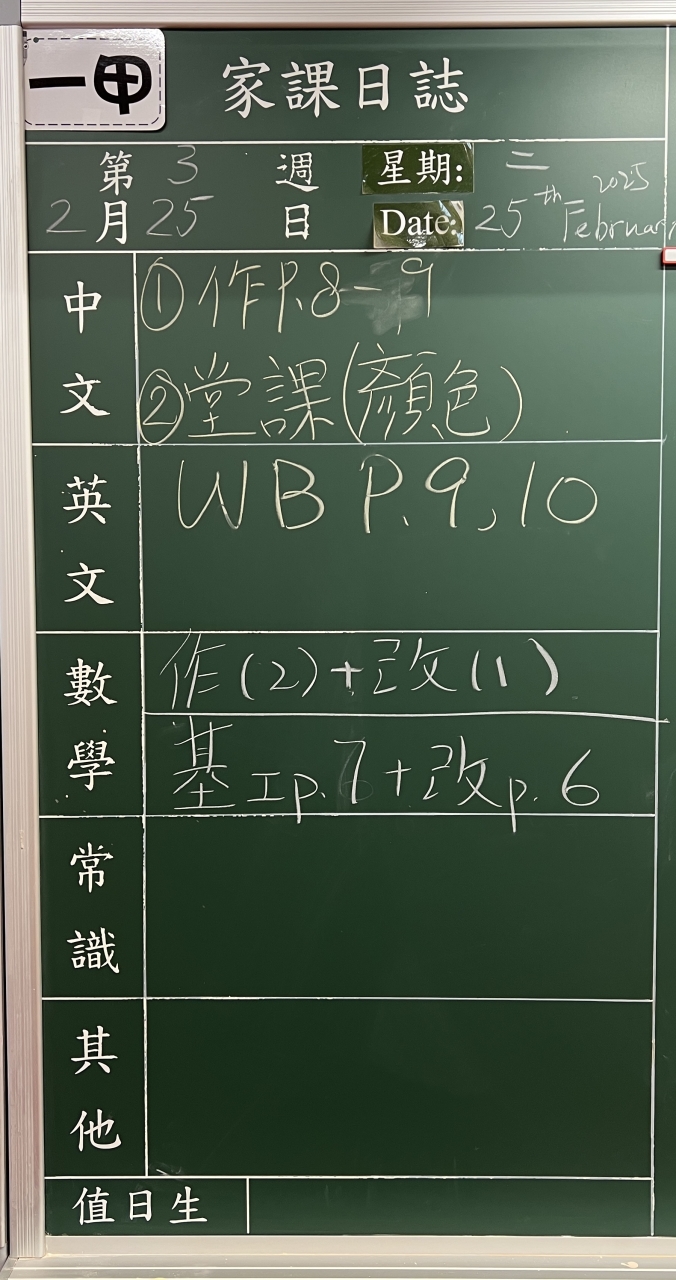 一甲
家課日誌
第 3 週 星期: 三
2 月 25 日 Date: 25th February 2025
中文
① 作P.8-9
② 堂課(顏色)
英文
WB P.9,10
數學
作(2)+改(1)
基工p.7+改p.6
常識
其他
值日生